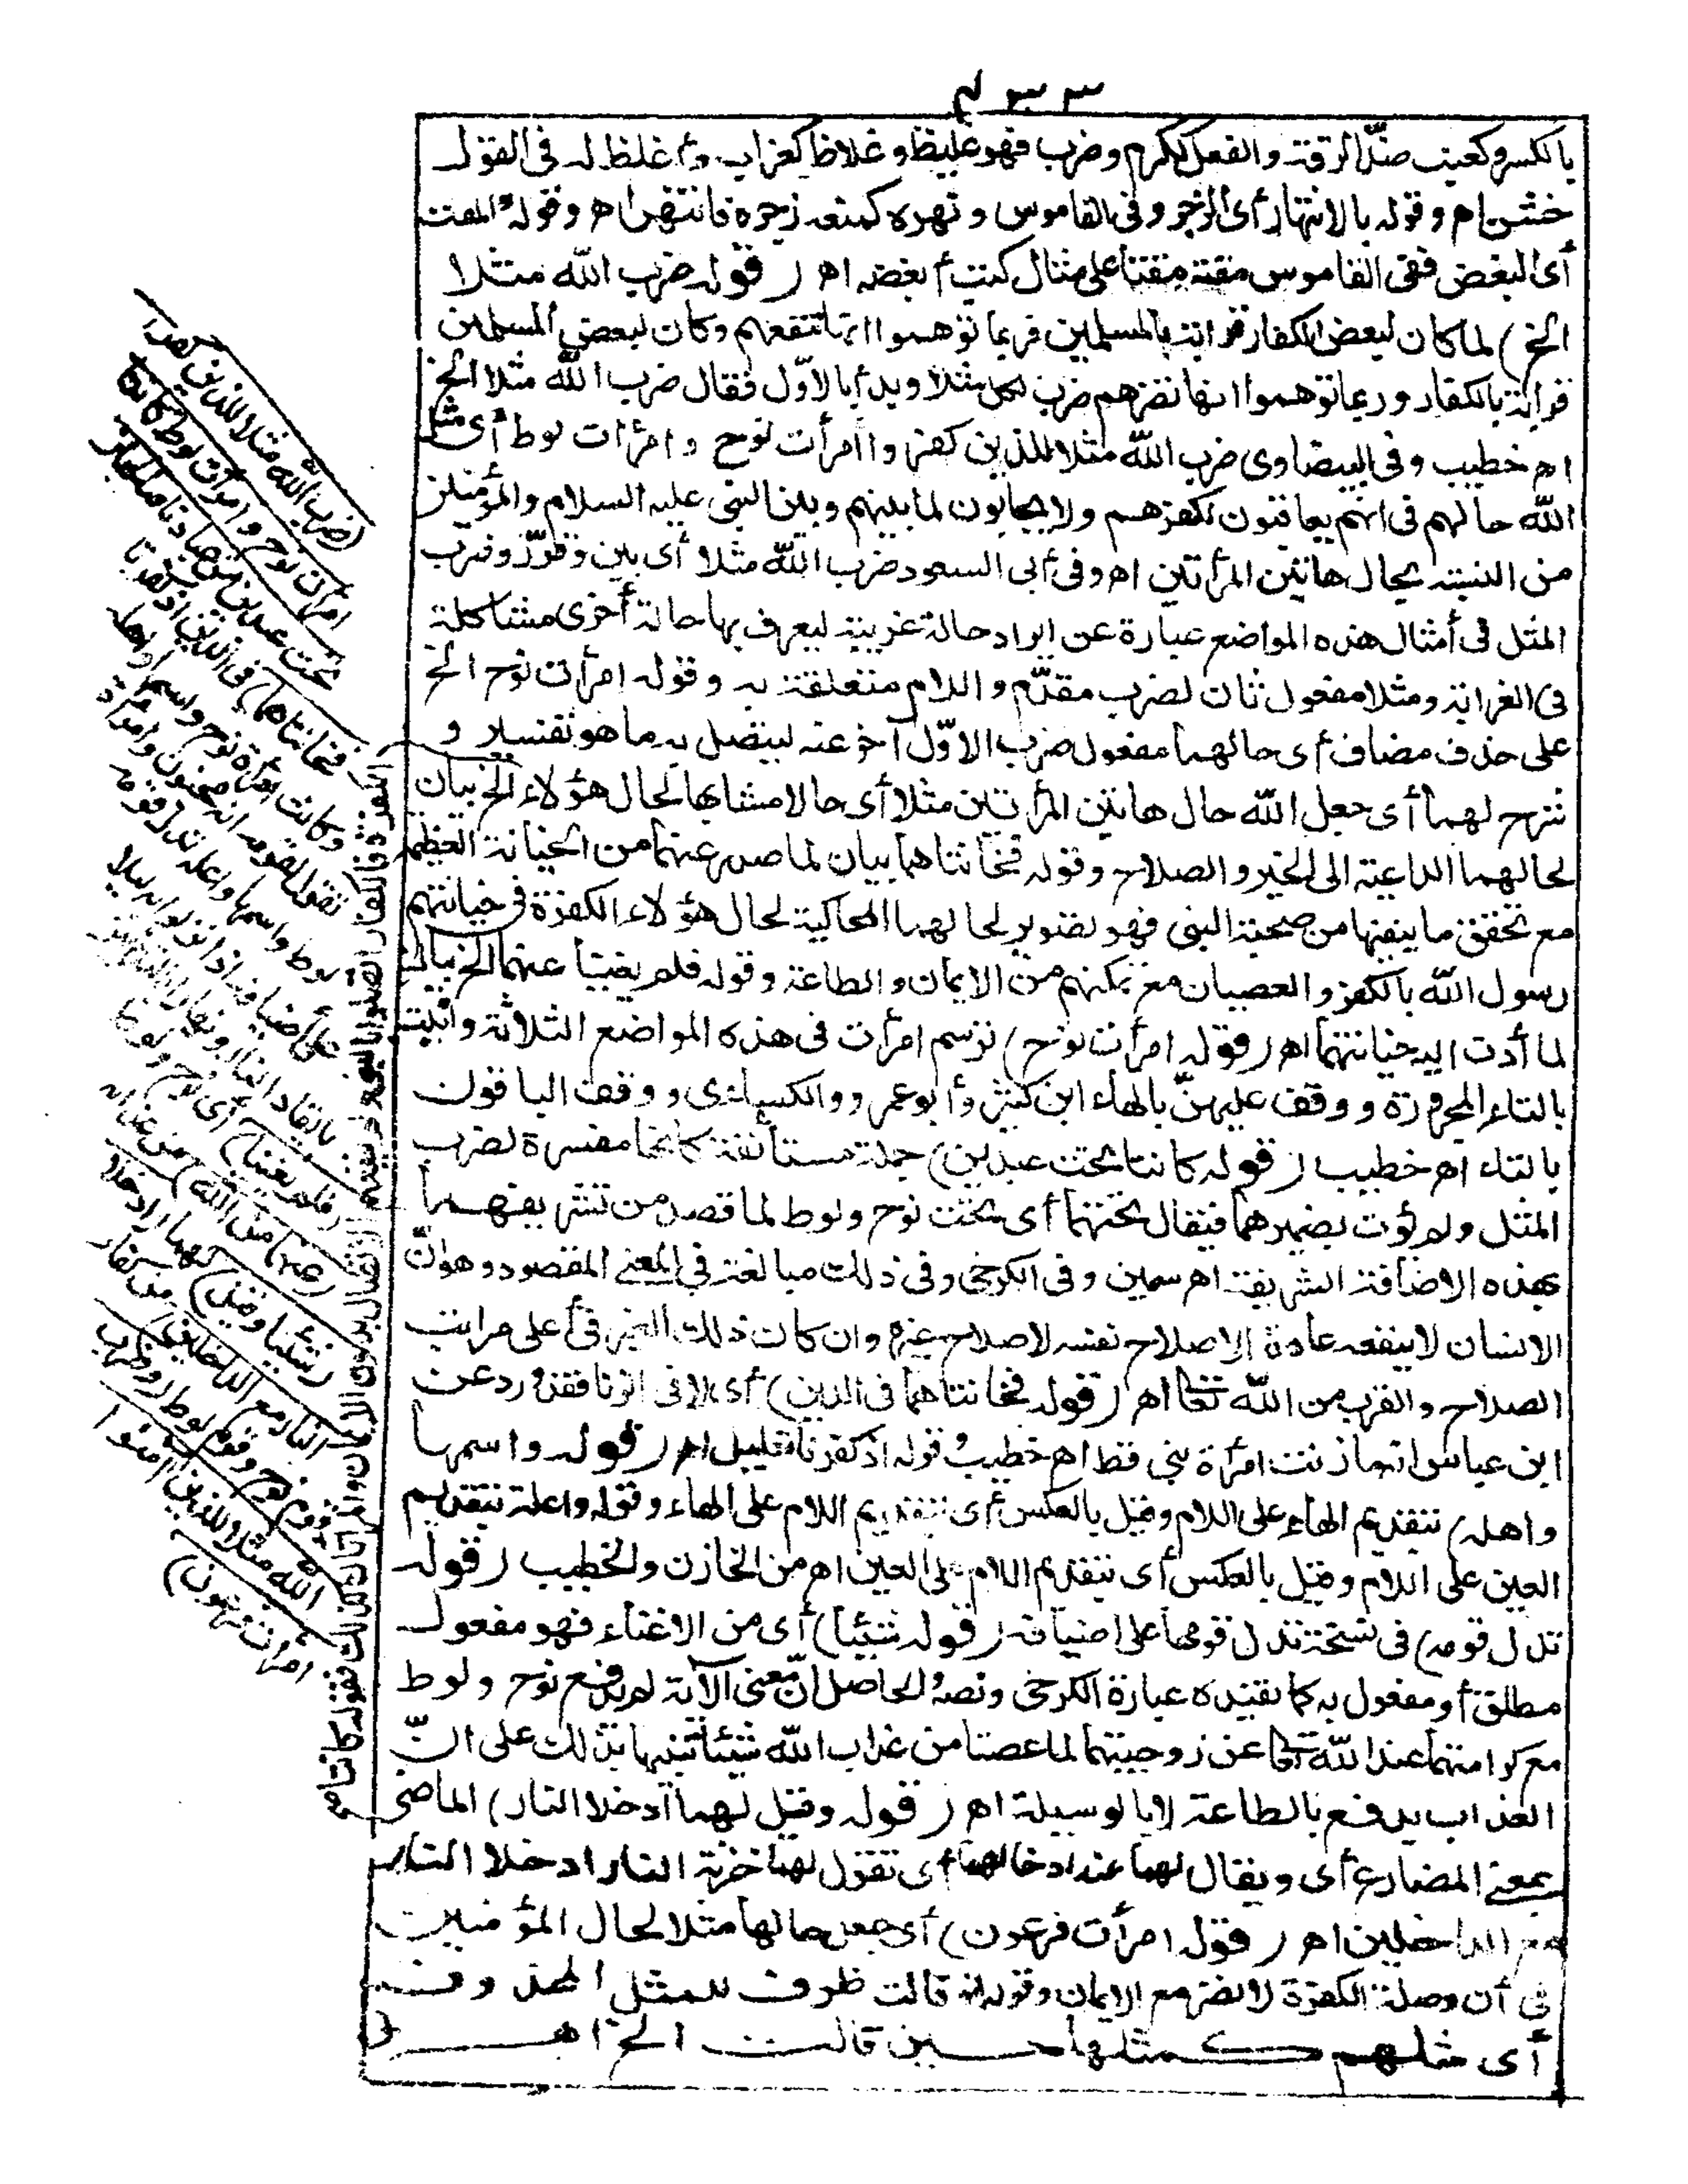 ٤٣٣
بالكسر وكعيف ضدّ الرقة والفعل ككرم وضرب فهو غليظ وغلاظ كغراب وأغلظ له فى القول
خشن اهـ وقوله بالانتهار أى الزجر وفى القاموس ونهره كمنعه زجره فانتهر اهـ وقوله والمقت
أى البغض ففى القاموس مقته مقتا على مثال كتب أبغضه اهـ (قوله ضرب الله مثلا
الخ) لما كان لبعض الكفار قرابة بالمسلمين فربما توهموا انها تنفعهم وكان لبعض المسلمين
قرابة بالكفار وربما توهموا انها تضرهم ضرب لكل مثلا وبدأ بالاوّل فقال ضرب الله مثلا الخ
اهـ خطيب وفى البيضاوى ضرب الله مثلا للذين كفروا امرأت نوح وامرأت لوط أى مثل
الله حالهم فى انهم يعاقبون بكفرهم ولا يحابون لما بينهم وبين النبى عليه السلام والمؤمنين
من النسبة بحال هاتين المرأتين اهـ وفى أبى السعود ضرب الله مثلا أى بين وقرّر وضرب
المثل فى أمثال هذه المواضع عبارة عن ايراد حالة غريبة ليعرف بها حالة أخرى مشاكلة
فى الغرابة ومثلا مفعول ثان لضرب مقدّم واللام متعلقة به وقوله امرأت نوح الخ
على حذف مضاف أى حالهما مفعول ضرب الاوّل أخر عنه ليتصل به ما هو تفسير و
شرح لهما أى جعل الله حال هاتين المرأتين مثلا أى حالا مشابها لحال هؤلاء الخ بيان
لحالهما الداعية الى الخير والصلاح وقوله فخانتاهما بيان لما صدر عنهما من الخيانة العظيمة
مع تحقق ما ينفيها من صحبة النبى فهو تصوير لحالهما المحاكية لحال هؤلاء الكفرة فى خيانتهم
رسول الله بالكفر والعصيان مع تمكنهم من الايمان والطاعة وقوله فلم يغنيا عنهما الخ بيان
لما أدت اليه خيانتهما اهـ (قوله امرأت نوح) ترسم امرأت فى هذه المواضع الثلاثة وابنت
بالتاء المجرورة ووقف عليهنّ بالهاء ابن كثير وأبو عمرو والكسائى ووقف الباقون
بالتاء اهـ خطيب (قوله كانتا تحت عبدين) جملة مستأنفة كأنها مفسرة لضرب
المثل ولم يؤت بضميرهما فيقال تحتهما أى تحت نوح ولوط لما قصد من تشريفهما
بهذه الاضافة الشريفة اهـ سمين وفى الكرخى وفى ذلك مبالغة فى المعنى المقصود وهو انّ
الانسان لا ينفعه عادة الا صلاح نفسه لا صلاح غيره وان كان ذلك الغير فى أعلى مراتب
الصلاح والقرب من الله تعالى اهـ (قوله فخانتاهما فى الدين) أى لا فى الزنا فقد ورد عن
ابن عباس انه ما زنت امرأة نبى قط اهـ خطيب وقوله اذ كفرتا تعليل اهـ (قوله واسمها
واهلة) بتقديم الهاء على اللام وقيل بالعكس أى بتقديم اللام على الهاء وقوله واعلة بتقديم
العين على اللام وقيل بالعكس أى بتقديم اللام على العين اهـ من الخازن والخطيب (قوله
تدل قومه) فى نسخة تدل قومها على اضيافه (قوله شيئا) أى من الاغناء فهو مفعول
مطلق أو مفعول به كما تفيده عبارة الكرخى ونصه والحاصل انّ معنى الآية لم يدفع نوح ولوط
مع كرامتهما عند الله تعالى عن زوجتيهما لما عصتا من عذاب الله شيئا تنبيها بذلك على انّ
العذاب يدفع بالطاعة لا بالوسيلة اهـ (قوله وقيل لهما ادخلا النار) الماضى
بمعنى المضارع أى ويقال لهما عند ادخالهما أى تقول لهما خزنة النار ادخلا النار
مع الداخلين اهـ (قوله امرأت فرعون) أى جعل حالها مثلا لحال المؤمنين
فى أن وصلة الكفرة لا تضر مع الايمان وقوله اذ قالت ظرف للمثل المحذوف
أى مثلهم كمثلها حين قالت الخ اهـ
(ضرب الله مثلا للذين كفروا
امرأت نوح وامرأت لوط كانتا
تحت عبدين من عبادنا صالحين
فخانتاهما) فى الدين اذ كفرتا
وكانت امرأة نوح واسمها واهلة
تقول لقومه انه مجنون وامرأة
لوط واسمها واعلة تدل قومه
على أضيافه اذا نزلوا به ليلا
بايقاد النار ونهارا بالتدخين
(فلم يغنيا) أى نوح ولوط
(عنهما من الله) من عذابه
(شيئا وقيل) لهما (ادخلا
النار مع الداخلين) من كفار
قوم نوح وقوم لوط (وضرب
الله مثلا للذين آمنوا
امرأت فرعون)